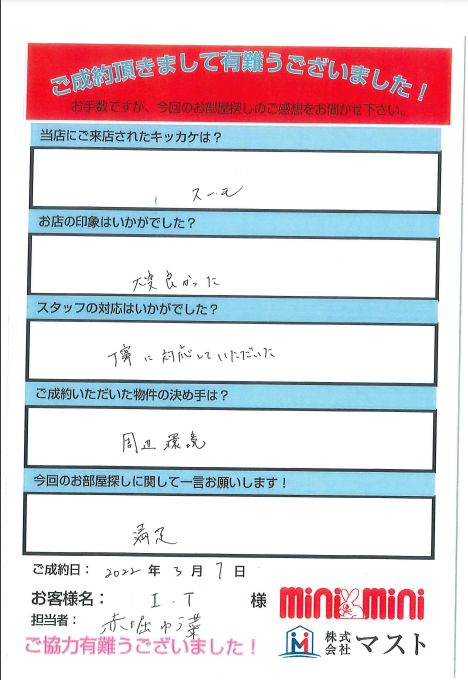 ご成約頂きまして有難うございました！
お手数ですが、今回のお部屋探しのご感想をお聞かせ下さい。
当店にご来店されたキッカケは？
スーモ
お店の印象はいかがでした？
大変良かった
スタッフの対応はいかがでした？
丁寧に対応していただいた
ご成約いただいた物件の決め手は？
周辺環境
今回のお部屋探しに関して一言お願いします！
満足
ご成約日： 2022 年 3 月 7 日
お客様名： I.T 様
担当者： 赤堀ゆう菜
ご協力有難うございました！
mini mini
株式会社 マスト